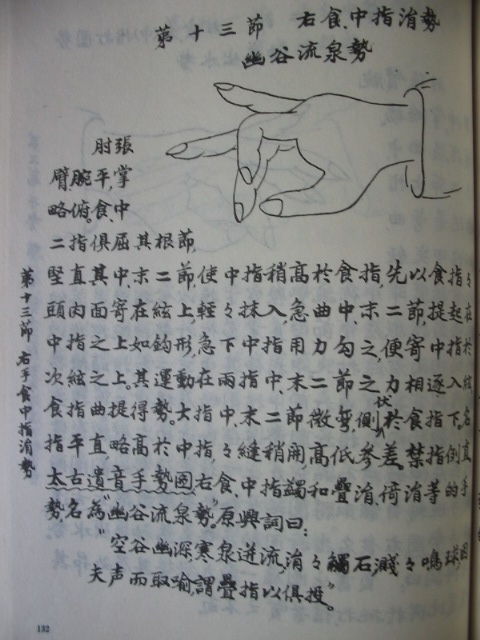 第十三節 右食、中指涓勢
幽谷流泉勢
肘張
臂、腕平,掌
略俯。食中
二指俱屈其根節,
堅直其中、末二節,使中指稍高於食指,先以食指々
頭肉面寄在絃上,輕々抹入,急曲中、末二節,提起在
中指之上如鈎形,急下中指用力勾之,便寄中指於
次絃之上。其運動在兩指中、末二節之力相逐入絃
食指曲提得勢。大指中、末二節微彎,側伏於食指下,名
指平直略高於中指,々縫稍開,高低參差。禁指倒直
太古遺音手勢圖右食、中指蠲和疊涓、倚涓等的手
勢名為“幽谷流泉勢”,原興詞曰:
“空谷幽深,寒泉迸流,涓々觸石,濺々鳴球,因
夫声而取喻,謂疊指以俱投。”
第十三節 右手食中指涓勢
132